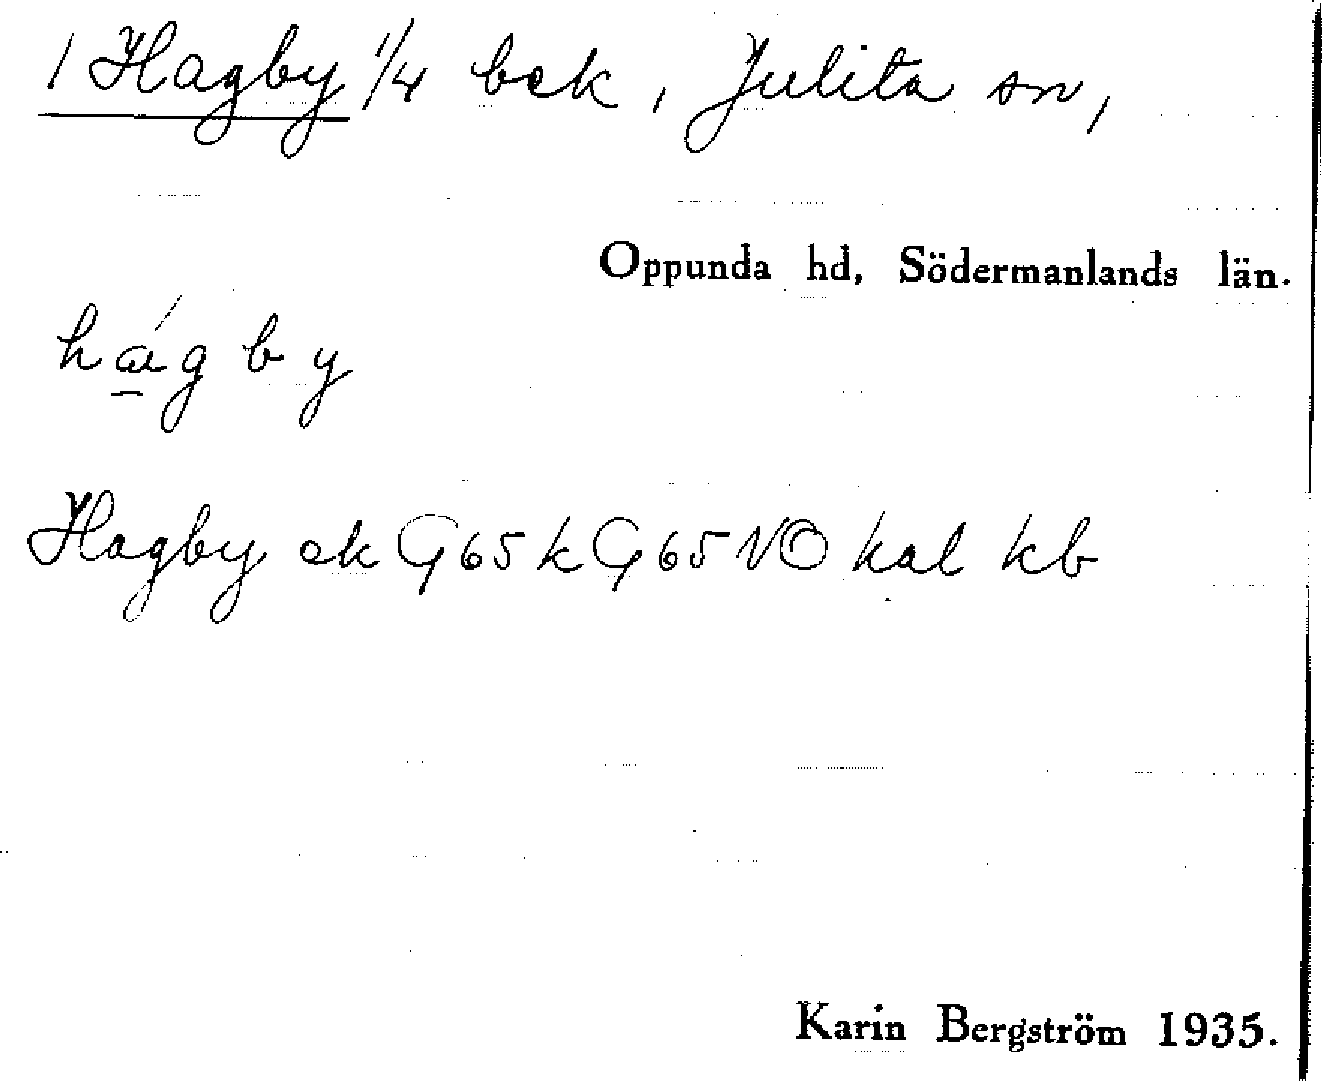 1 Hagby 1/4 bek, Julita sn,
Oppunda hd, Södermanlands län.
hágby
Hagby ek G65k G65NO kal kb
Karin Bergström 1935.